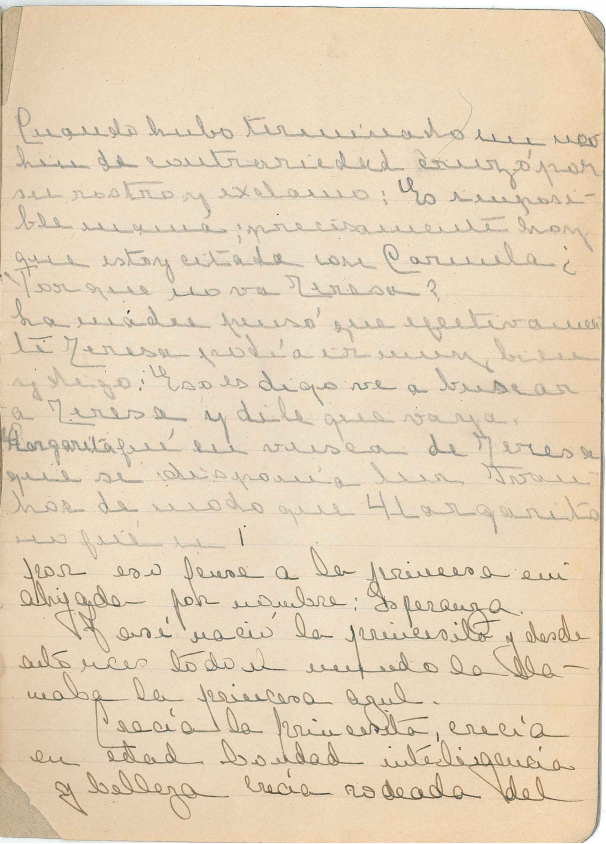 Cuando hubo terminado un moo
hin de contrariedad cruzó por
su rostro y exclamo: Es imposi-
ble mamá; precisamente hoy
que estoy citada con Carmela ¿
Por que no va Teresa?
La madre pensó que efectivamen
te Teresa podia ir muy bien
y digo: Eso es digo ve a buscar
a Teresa y dile que vaya.
Margarita fué en vusca de Teresa
que se disponia leer Ivan
hoe de modo que Margarita
no fué
por eso puse a la princesa mi
ahijada por nombre: Esperanza.
Y asi nació la princesita y desde
entonces todo el mundo la lla-
maba la princesa azul.
Crecía la princesita, crecía
en edad bondad inteligencia
y belleza crecía rodeada del